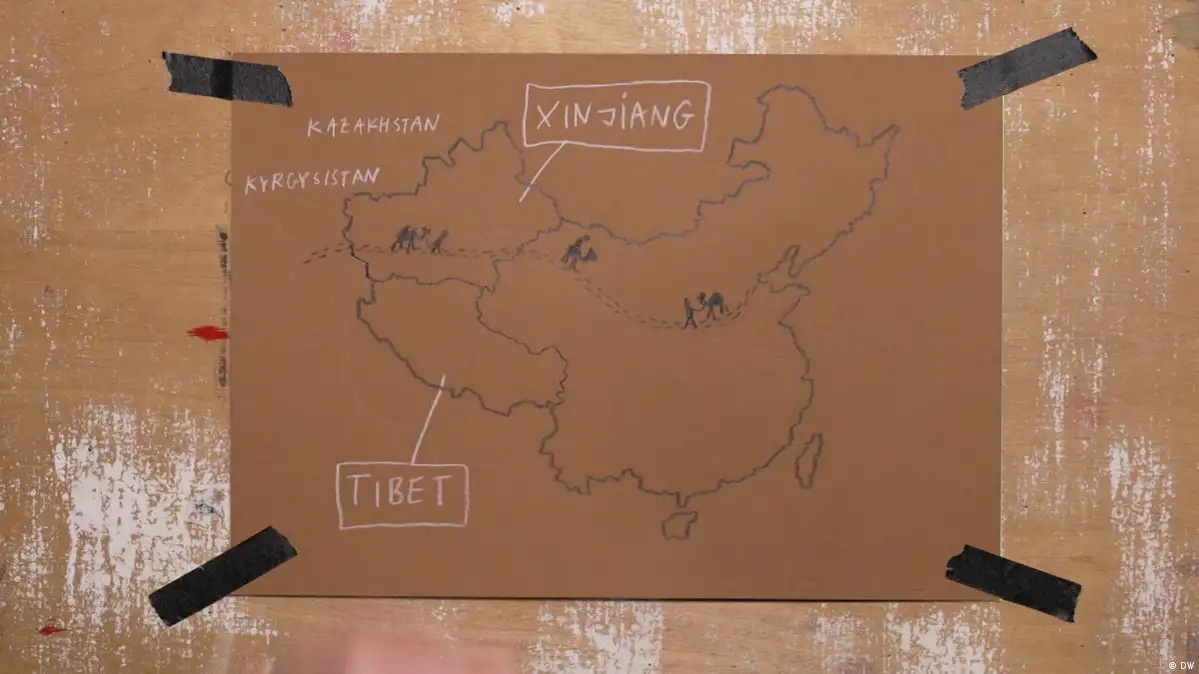 XINJIANG
KAZAKHSTAN
KYRGYSISTAN
TIBET
© DW